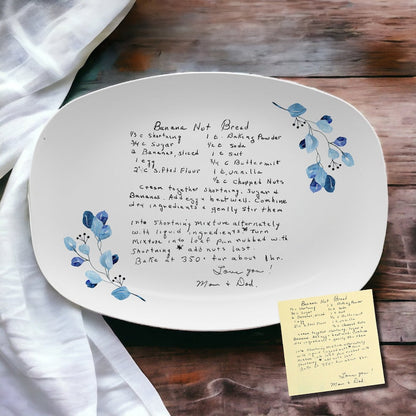 Banana Nut Bread
⅓ c shortning 1 t. Baking Powder
¾ c sugar ½ t. soda
2 Bananas, sliced 1 t salt
1 egg ¼ c Buttermilk
2 c sifted Flour 1 t. vanilla
½ c Chopped Nuts
Cream together shortning, sugar &
Bananas. Add egg & beat well. Combine
dry ingredients & gently stir them
into shortning mixture alternately
with liquid ingredients * Turn
mixture into loaf pan rubbed with
shortning * add nuts last
Bake at 350° for about 1 hr.
Love you!
Mom & Dad.
Banana Nut Bread
Love you!
Mom & Dad.